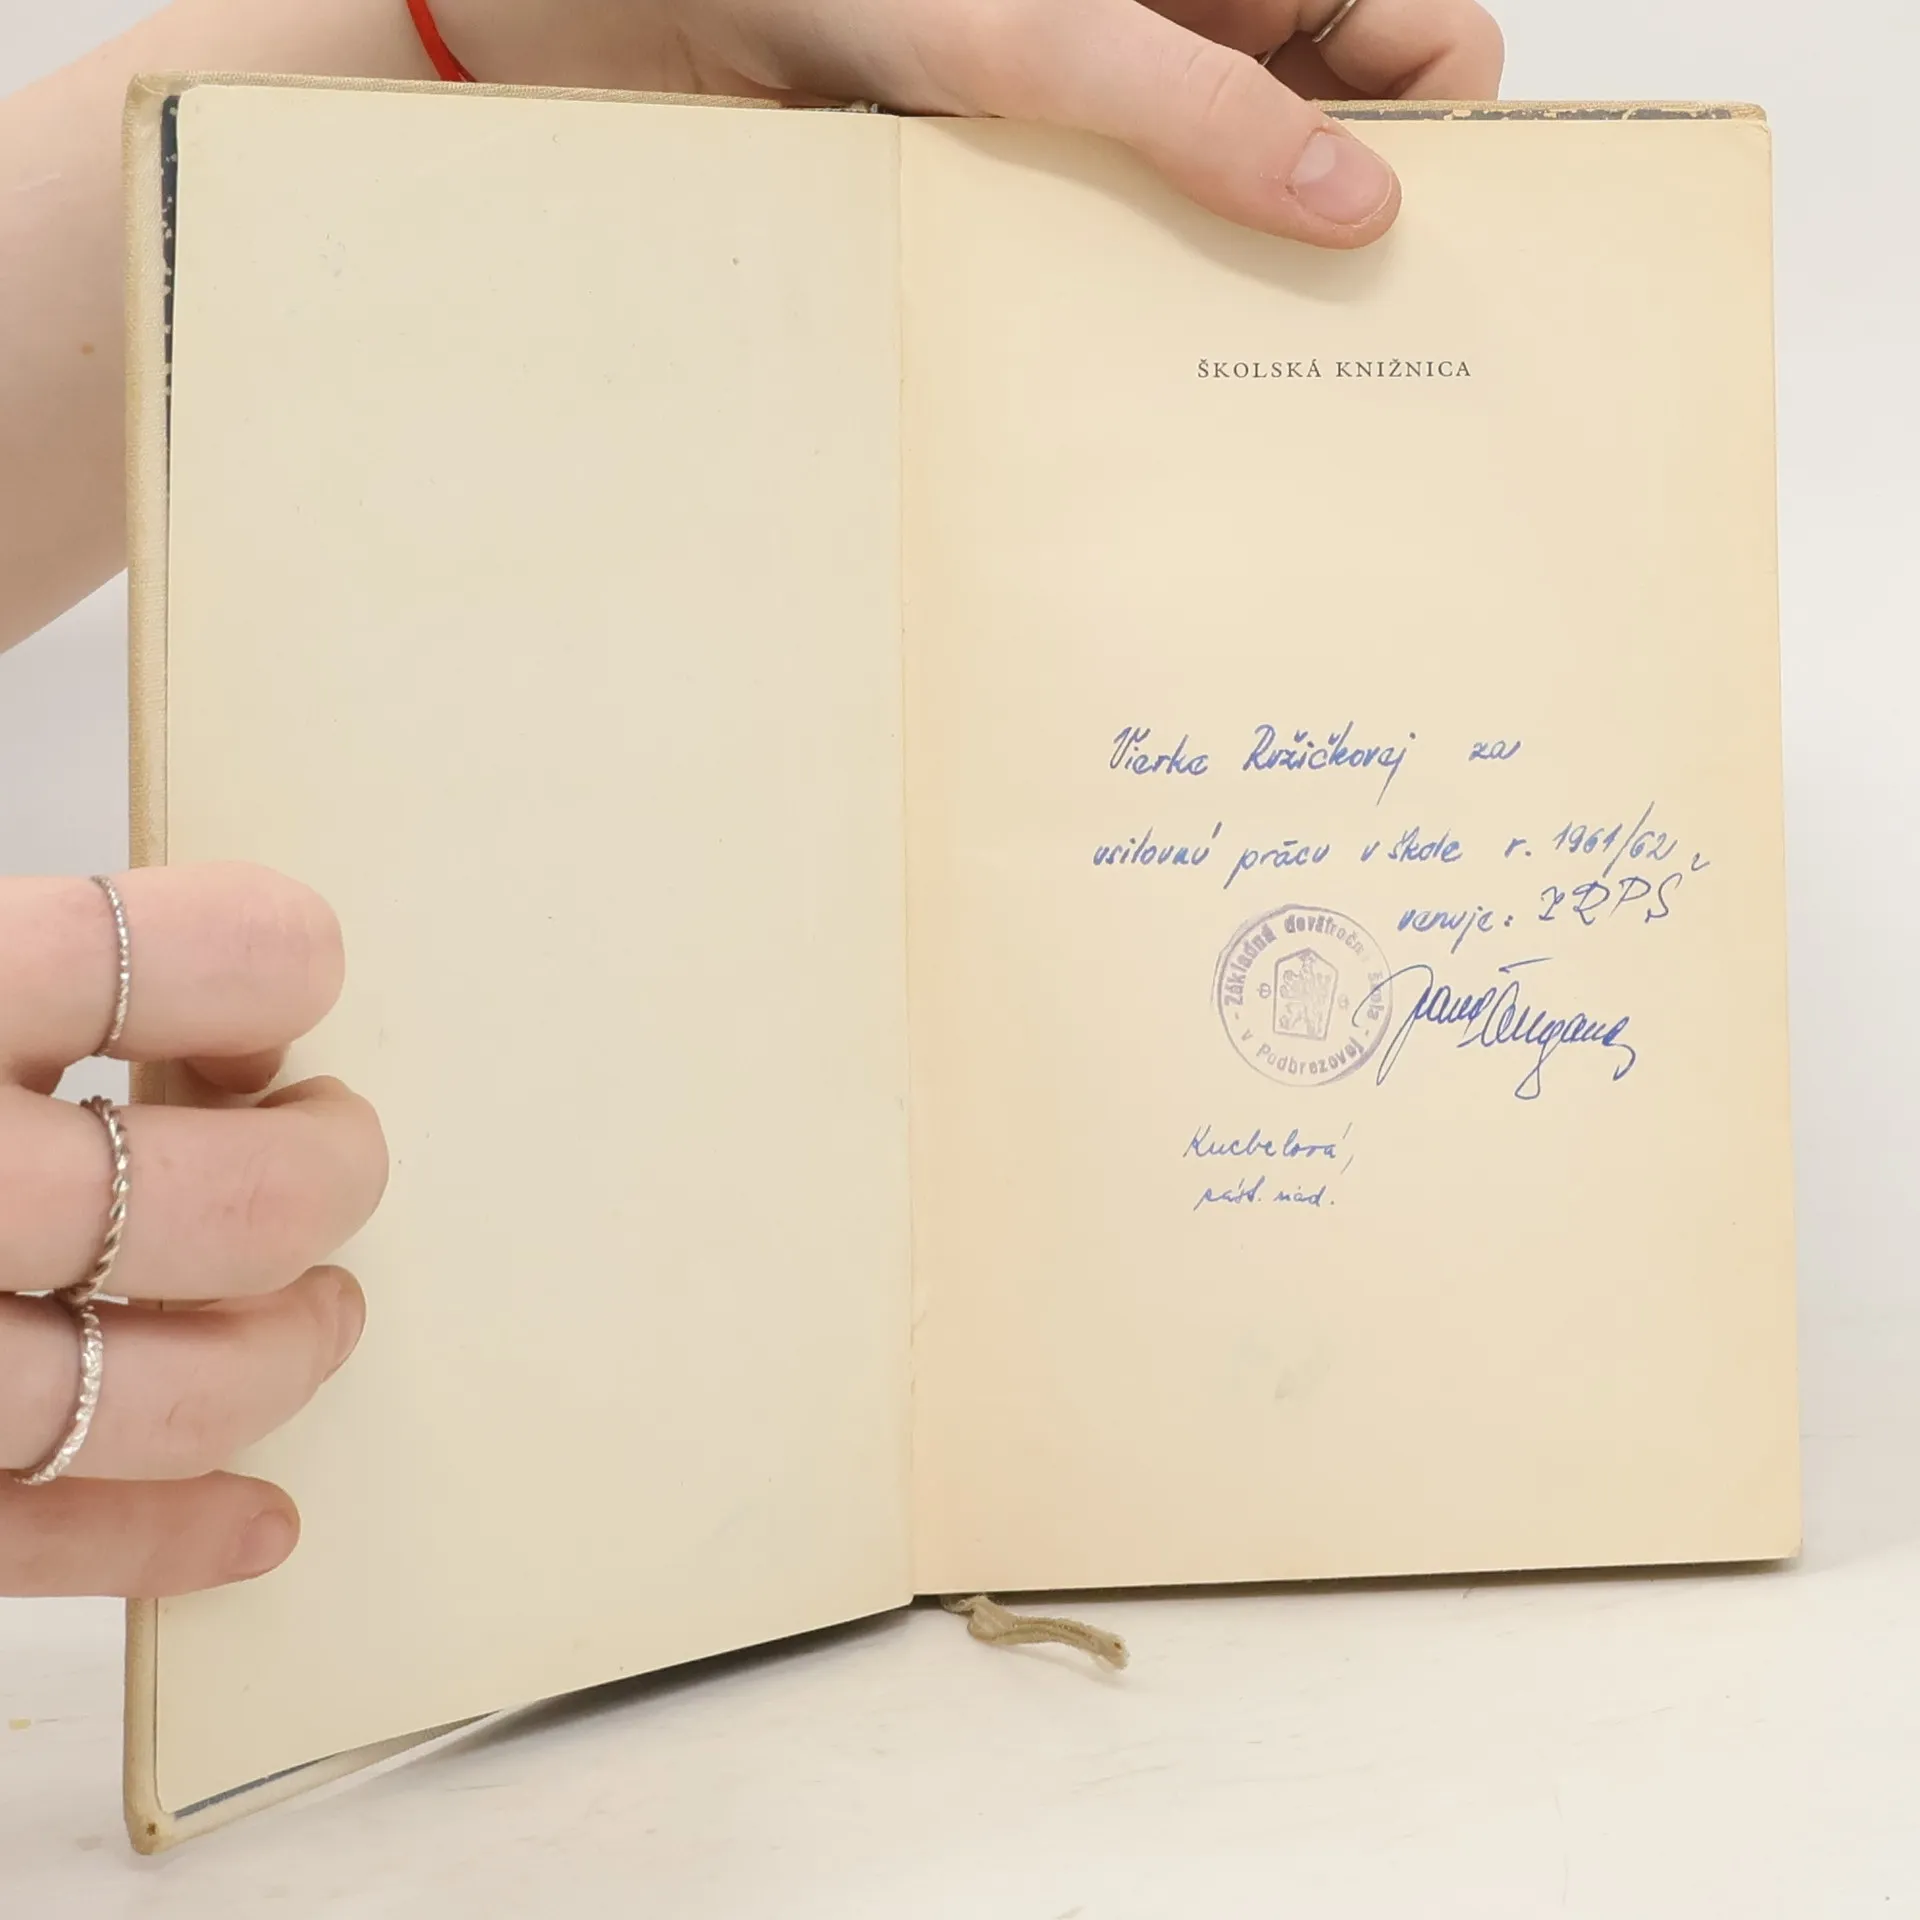 ŠKOLSKÁ KNIŽNICA
Vierke Ružičkovej za
usilovnú prácu v škole r. 1961/62
venuje: ZRPŠ
- Základná deväťročná škola -
v Podbrezovej
Kuchelová,
zást. riad.